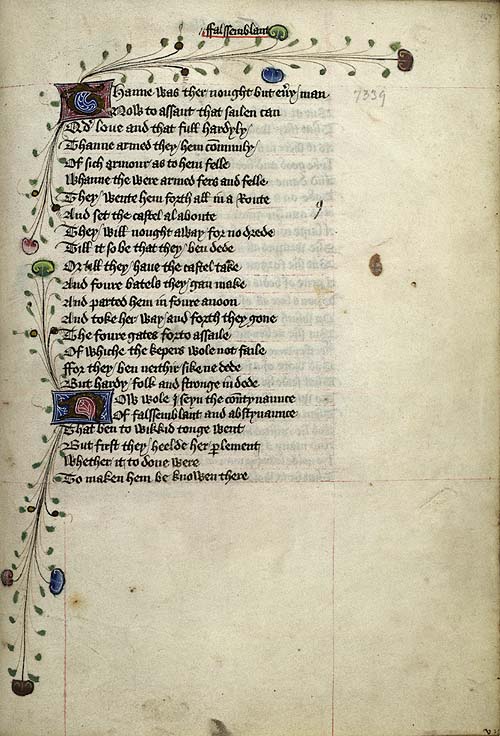 ffalssemblant
7339
Thanne was ther nought but euery man
Now to assaut that sailen can
Qd loue and that full hardyly
Thanne armed they hem comunly
Of sich armour as to hem felle
Whanne the were armed fers and felle
They wente hem forth all in a Route
And set the castel al aboute
They will nought away for no drede
Till it so be that they ben dede
Or till they haue the castel take
And foure batels they gan make
And parted hem in foure anoon
And toke her way and forth they gone
The foure gates forto assaile
Of whiche the kepers wole not faile
ffor they ben neithir sike ne dede
But hardy folk and stronge in dede
Now wole I seyn the countynaunce
Of falssemblant and abstynaunce
That ben to wikkid tonge went
But first they heelde her plement
Whether it to done were
To maken hem be knowen there